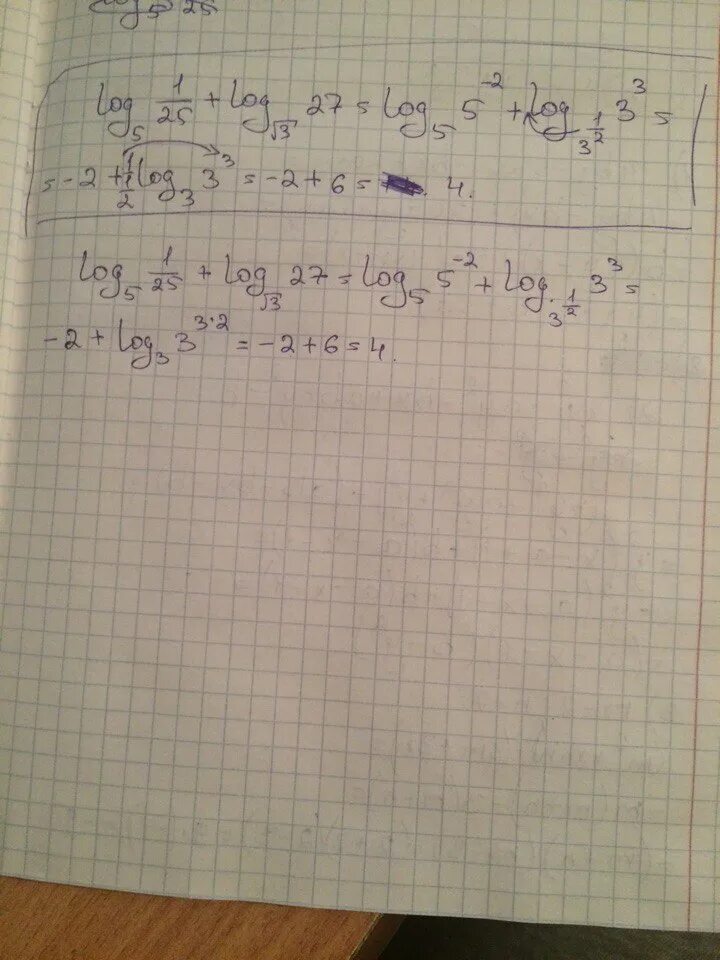 log₅ 25
log₅ 1/25 + log_√3 27 = log₅ 5⁻² + log_3^(1/2) 3³ =
= -2 + 1/(1/2) log₃ 3³ = -2 + 6 = 4.
log₅ 1/25 + log_√3 27 = log₅ 5⁻² + log_3^(1/2) 3³ =
-2 + log₃ 3^(3·2) = -2 + 6 = 4.